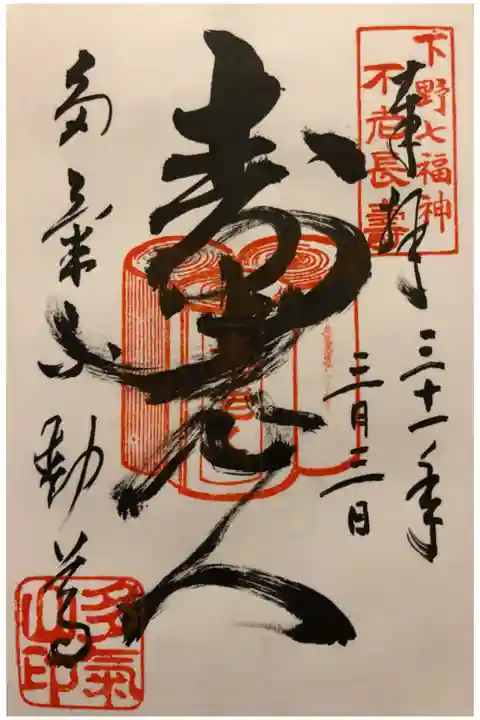 下野七福神
不老長壽
奉拝
三十一年
三月三日
寿老人
多気不動尊
多氣
山印